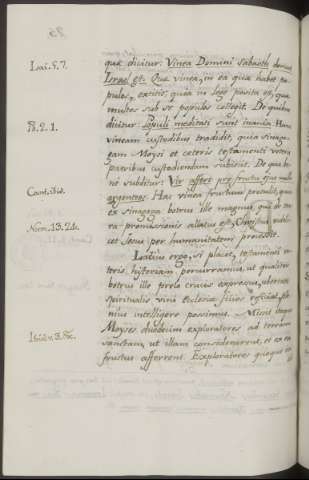 Isai. 5. 7.
Ps. 2. 1.
Cant. ibid.
Num. 13. 24.
Ibid. v. 3. &c.
quæ dicitur: Vinea Domini sabaoth domus
Israel est. Quæ vinea, in ea quia habet po-
pulos, extitit, quia in lege posita est, quæ
multos sub se populos collegit. De quibus
dicitur: Populi meditati sunt inania. Hanc
vineam custodibus tradidit, quia sinago-
gam Moysi et cæteris testamenti veteris
patribus custodiendam subdidit. De qua be-
ne subditur: Vir affert pro fructu ejus mille
argenteos. Hæc vinea fructum protulit, quia
ex sinagoga botrus ille magnus, qui de ter-
ra promissionis allatus est, Christus, vide-
licet Jesus per humanitatem processit.
Latius ergo, si placet, testamenti ve-
teris historiam percurramus, ut qualiter
botrus ille prelo crucis expressus, ubertate
spiritualis vini Ecclesiæ filios reficiat, ple-
nius intelligere possimus. Misit itaque
Moyses duodecim exploratores ad terram
sanctam, ut illam considerarent, et ex ea
fructus afferrent. Exploratores quoque